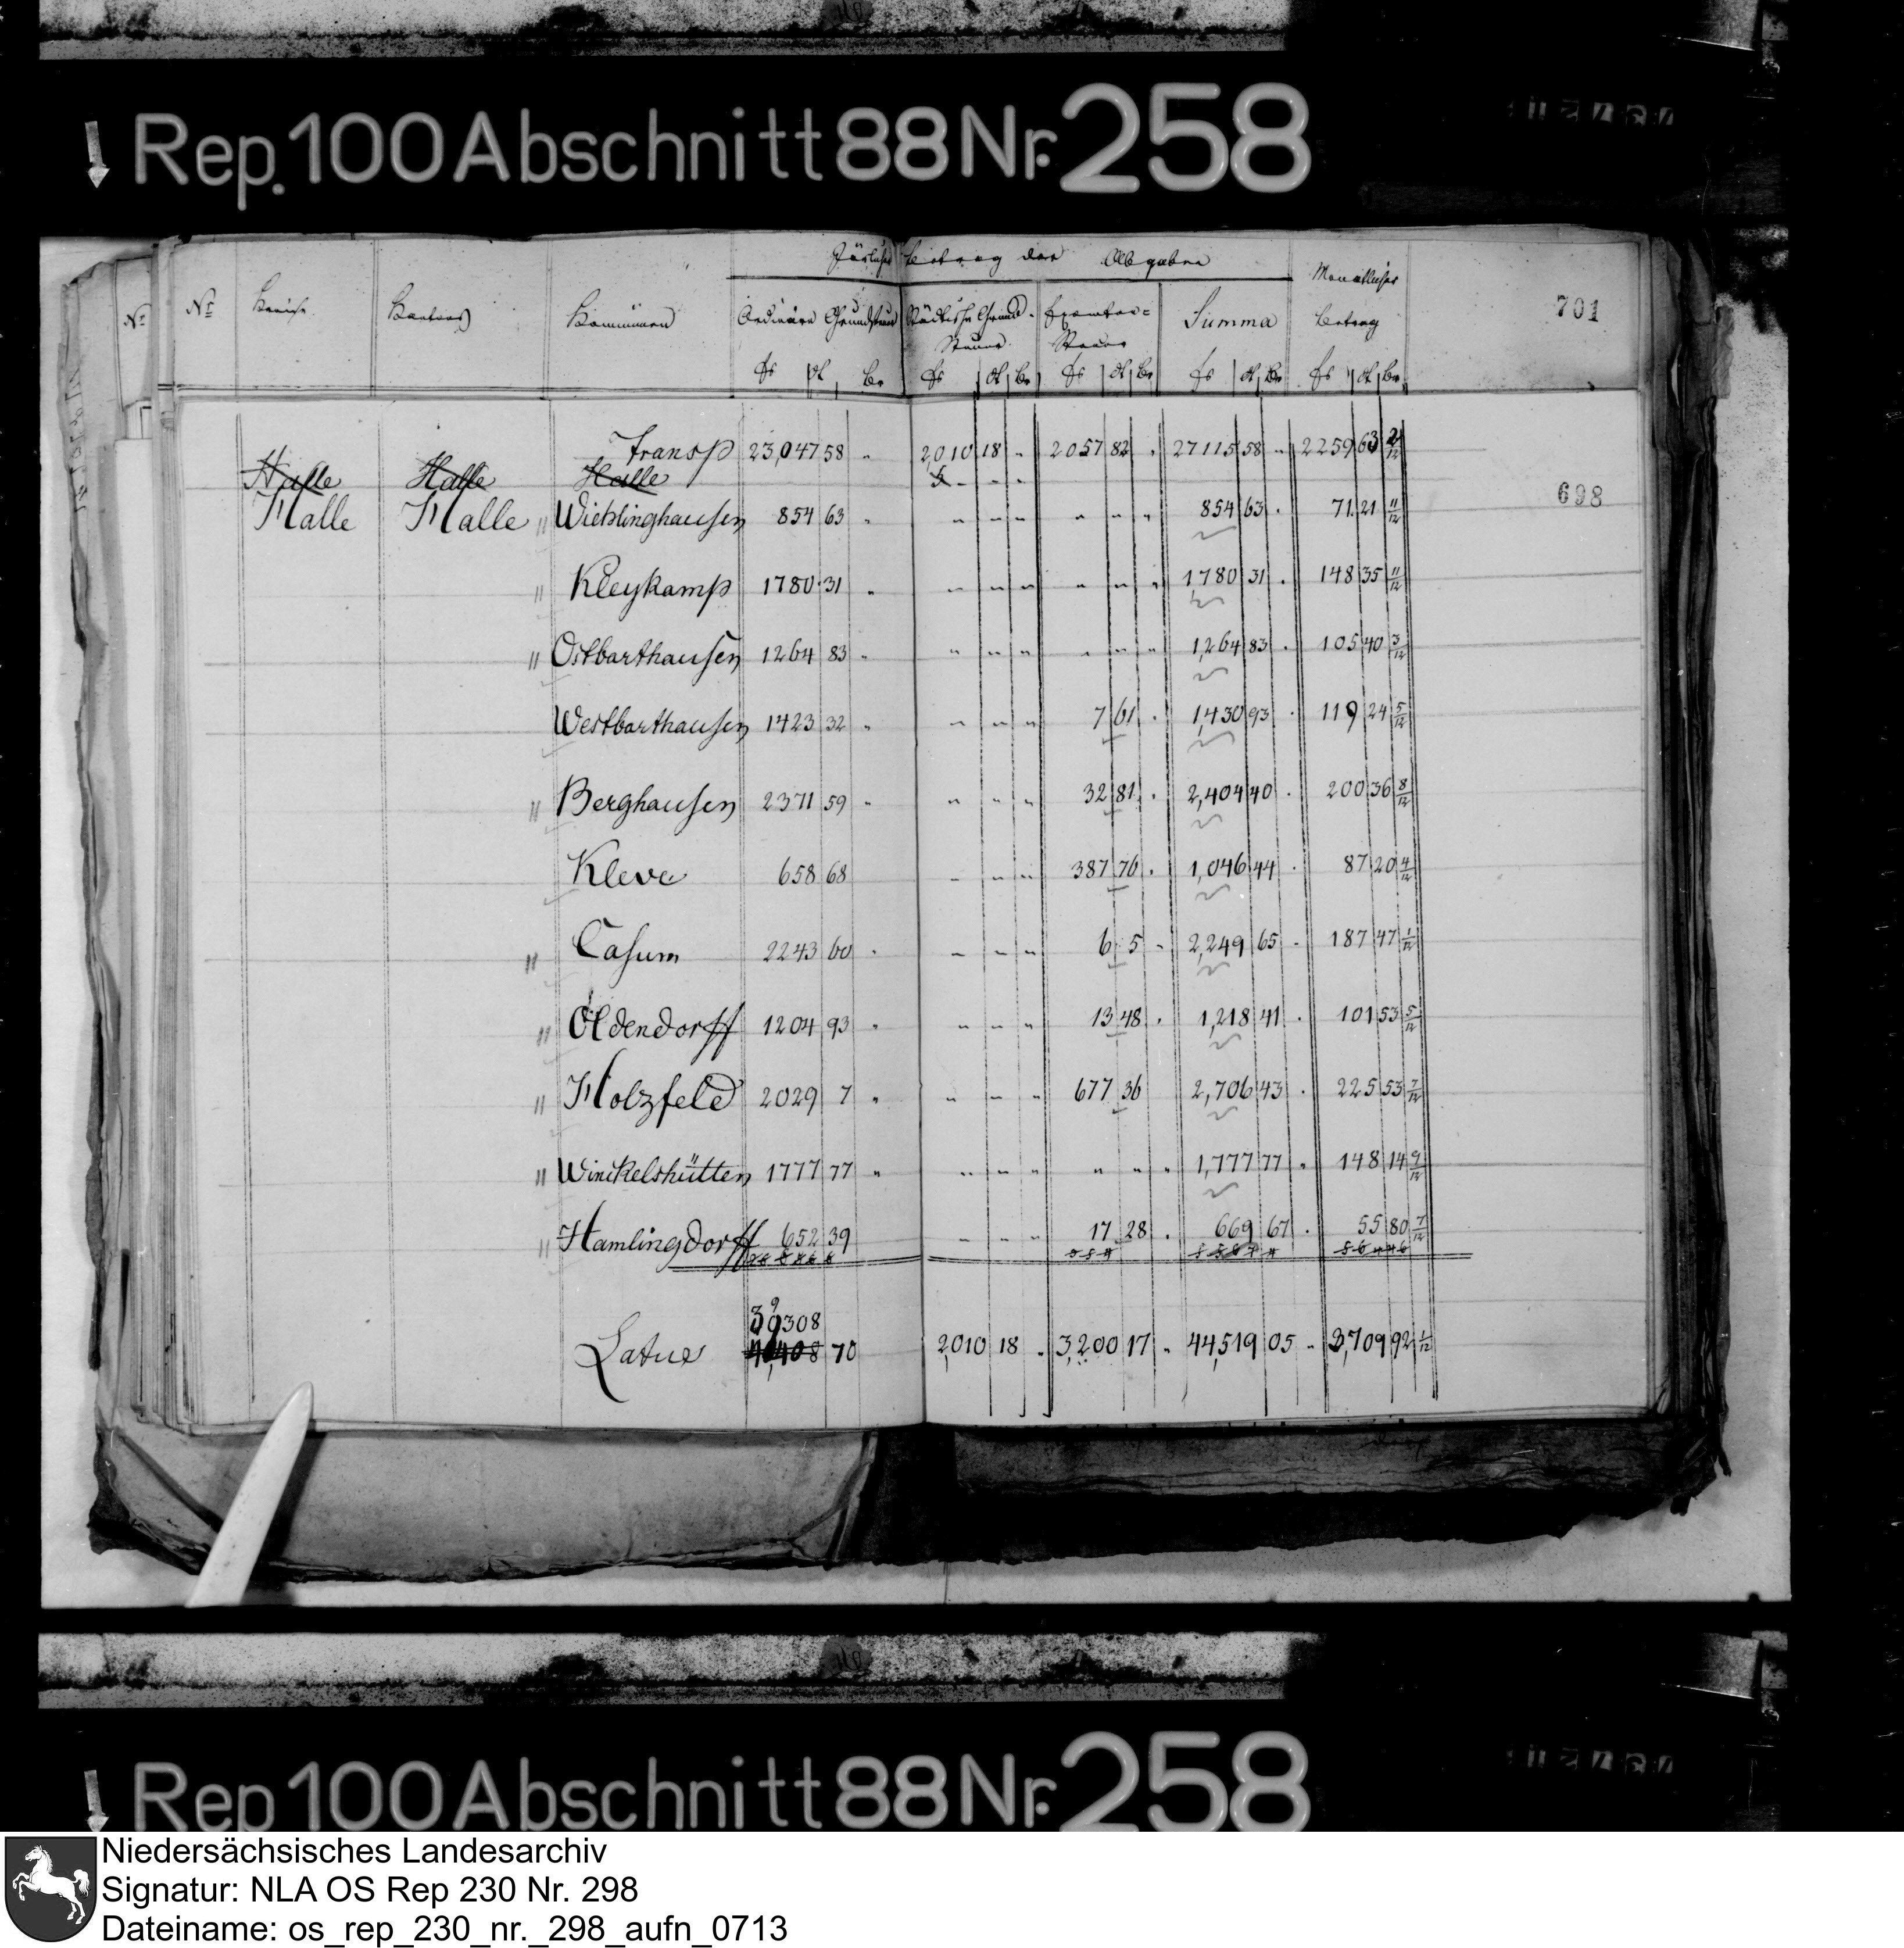 Rep. 100 Abschnitt 88 Nr. 258
Järlicher Betrag der Abgaben
Monatlicher
701
No No Kreise Kantons Kommünen Ordinäre Grundsteuer Städtische Grund- Exemten= Summa Betrag
Steuer Steuer
fs ct Br fs ct Br fs ct Br fs ct Br fs ct Br
Transp 23,047 58 " 2,010 18 " 2057 82 " 27115 58 " 2259 63 2/12
Halle Halle Halle
698
Halle Halle " Wichlinghausen 854 63 " " " " " " " 854 63 . 71 21 11/12
" Kleykamp 1780 31 " " " " " " " 1780 31 . 148 35 11/12
" Ostbarthausen 1264 83 " " " " " " " 1,264 83 . 105 40 3/12
Westbarthausen 1423 32 " " " " 7 61 . 1,430 93 . 119 24 5/12
" Berghausen 2371 59 " " " " 32 81 . 2,404 40 . 200 36 8/12
Kleve 658 68 " " " 387 76 . 1,046 44 . 87 20 4/12
" Casum 2243 60 " " " " 6 5 " 2,249 65 " 187 47 1/12
" Oldendorff 1204 93 " " " " 13 48 . 1,218 41 . 101 53 5/12
" Holzfeld 2029 7 " " " " 677 36 2,706 43 . 225 53 7/12
" Winckelshütten 1777 77 " " " " " " " 1,777 77 " 148 14 9/12
" Hamlingdorff 652 39 " " " 17 28 . 669 67 . 55 80 7/12
39308
Latus 70 2,010 18 . 3,200 17 " 44,519 05 " 3,709 92 1/12
Rep 100 Abschnitt 88 Nr. 258
Niedersächsisches Landesarchiv
Signatur: NLA OS Rep 230 Nr. 298
Dateiname: os_rep_230_nr._298_aufn_0713